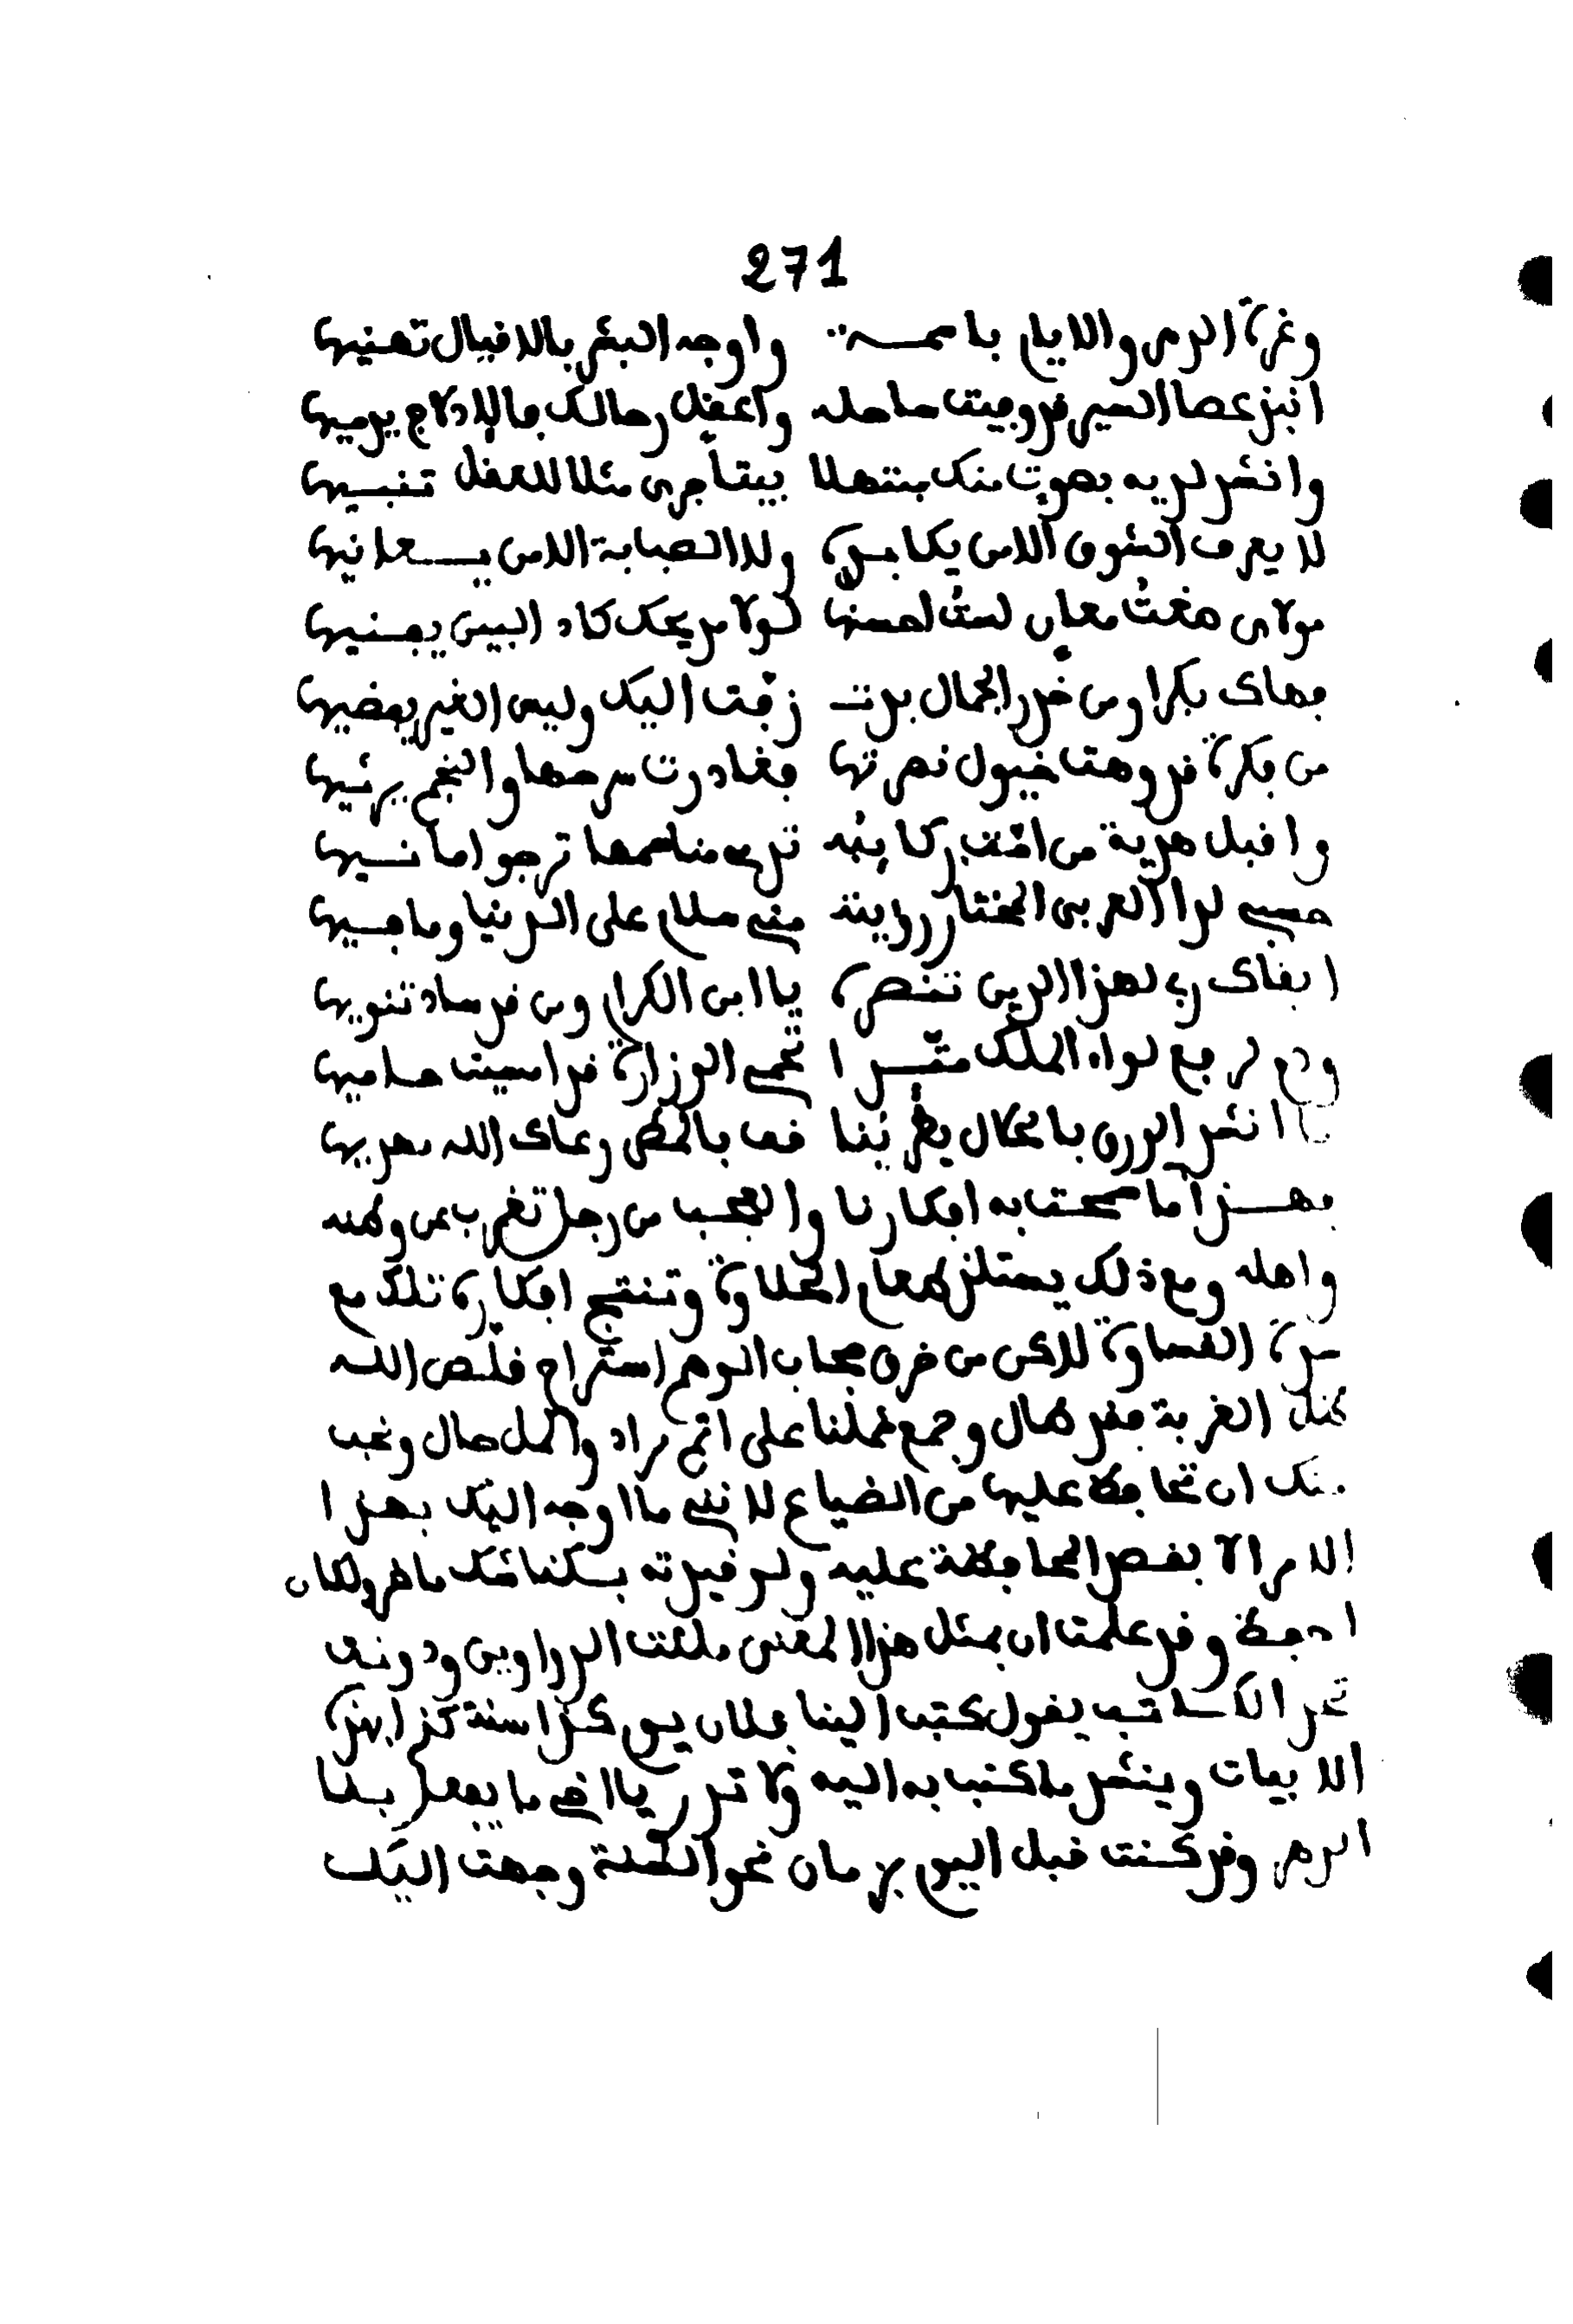 271
وغرة الدهر والايام باسمة واوجه البشر بالاقبال تهنيها
انبذ عصا السير قد وفيت ساحله واعقل رحالك فالادلاج يدميها
وانشد لديه بصوت منك مبتهلا بيتا جرى مثلا للعقل تنبيها
لا يعرف الشوق الا من يكابده ولا الصبابة الا من يعانيها
مولاى صغت معان لست احسنها لولا مديحك كاد البين يصنيها
فهاك بكرا ومن خدر الجمال بدت زفت اليك وليس الغير يفضيها
من فكرة قد وهت خيول نصرتها فغادرت سرحها والنجم يرئيها
واقبل هدية من اقتب ركائبه ترى مناسمها ترجو امانيها
حسبي لدا العربى المختار روايته منى سلام على الدنيا وما فيها
ابقاك رب لهذا الدين تنصره يا ابن الكرام ومن قد ساد تنويها
ودم لرفع لواء الملك متسرا تحمى الوزارة قد امسيت حاميها
ما انشد الورق بامحال يطربنا قف بالحمى وعاك الله نهديها
فهذا ما سمحت به افكارنا والعجب من رجل تغرب عن وطنه
واهله ومع ذلك يستلذ طعام الحلاوة وتنتج افكاره تلك مع
هذه القساوة لاكن من خرق حجاب الوهم استراح قلص الله
ظل الغربة فقد طال وجمع شملنا على اتم مراد واكمل حال ونحب
منك ان تحافظ عليها من الضياع لاننى ما اوجه اليك بهذا
الامر الا بقصد المحافظة عليه ولو قيدته بكناشك ماظر ولكان
احفظ وقد علمت ان بمثل هذا المعنى ملئت الدواوين ودونت
تجد الكاتب يقول كتب الينا فلان يوم كذا سنة كذا بهذه
الابيات وينشد ما كتب به اليه ولا تدر يا اخى ما يفعل بنا
الدهر وقد كنت قبل اليوم بزمان نحو السنة وجهت اليك